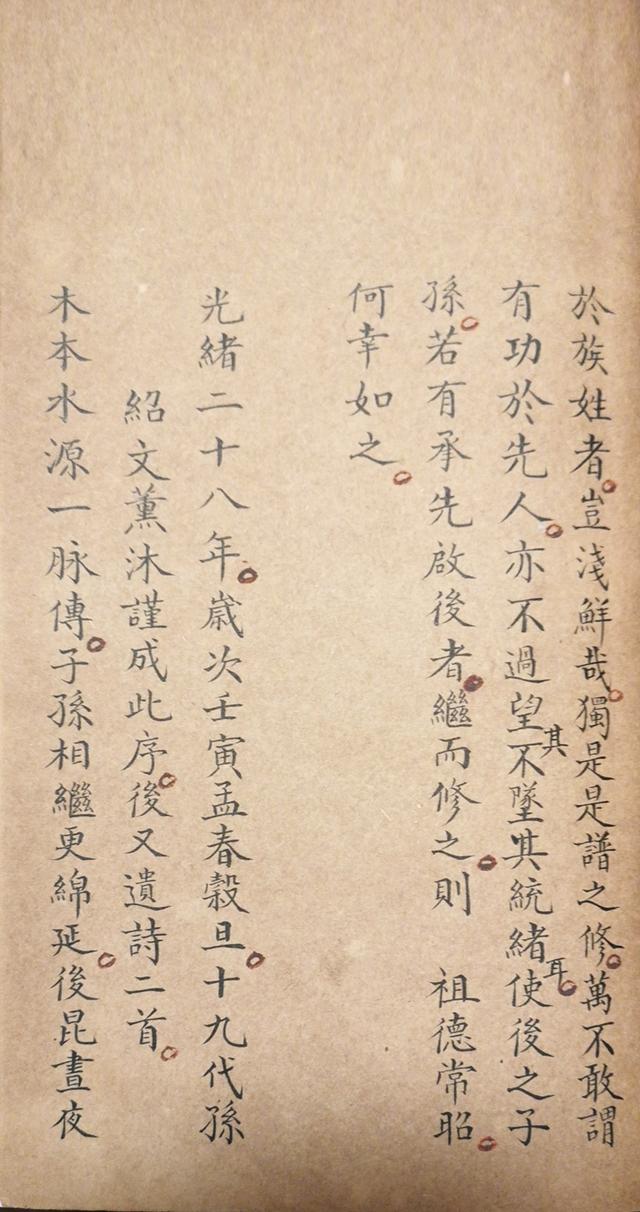 於族姓者。豈淺鮮哉。獨是是譜之修。萬不敢謂
有功於先人。亦不過望其不墜其統緒耳。使後之子
孫。若有承先啟後者。繼而修之。則　祖德常昭。
何幸如之。
光緒二十八年。歲次壬寅孟春穀旦。十九代孫
紹文薰沐謹成此序。後又遺詩二首。
木本水源一脉傳。子孫相繼更綿延。後昆晝夜